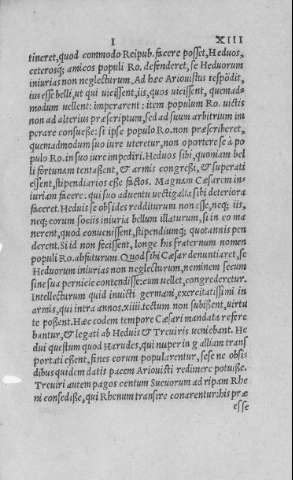 I XIII
tineret, quod commodo Reipub. facere posset, Heduos,
ceterosq; amicos populi Ro. defenderet, se Heduorum
iniurias non neglecturum. Ad hæc Ariouistus respōdit,
ius esse belli, ut qui uicissent, iis, quos uicissent, quemad
modum uellent: imperarent: item populum Ro. uictis
non ad alterius præscriptum, sed ad suum arbitrium im
perare consuesse: si ipse populo Ro. non præscriberet,
quemadmodum suo iure uteretur, non oportere se à po
pulo Ro. in suo iure impediri. Heduos sibi, quoniam bel
li fortunam tentassent, & armis congressi, & superati
essent, stipendiarios esse factos. Magnam Cæsarem in=
iuriam facere: qui suo aduentu uectigalia sibi deteriora
faceret. Heduis se obsides redditurum non esse, neq; iis,
neq; eorum sociis iniuria bellum illaturum, si in eo ma
nerent, quod conuenisset, stipendiumq; quot annis pen
derent. Si id non fecissent, longe his fraternum nomen
populi Ro. abfuturum. Quod sibi Cæsar denuntiaret, se
Heduorum iniurias non neglecturum, neminem secum
sine sua pernicie contendisse: cum uellet, congrederetur.
Intellecturum quid inuicti germani, exercitatissimi in
armis, qui intra annos xiiii. tectum non subissent, uirtu
te possent. Hæc eodem tempore Cæsari mandata refere
bantur, & legati ab Heduis & Treuiris ueniebant. He
dui questum quod Harudes, qui nuper in galliam trans
portati essent, fines eorum popularentur, sese ne obsi
dibus quidem datis pacem Ariouisti redimere potuisse.
Treuiri autem pagos centum Sueuorum ad ripam Rhe
ni consedisse, qui Rhenum transire conarentur: his præ
esse